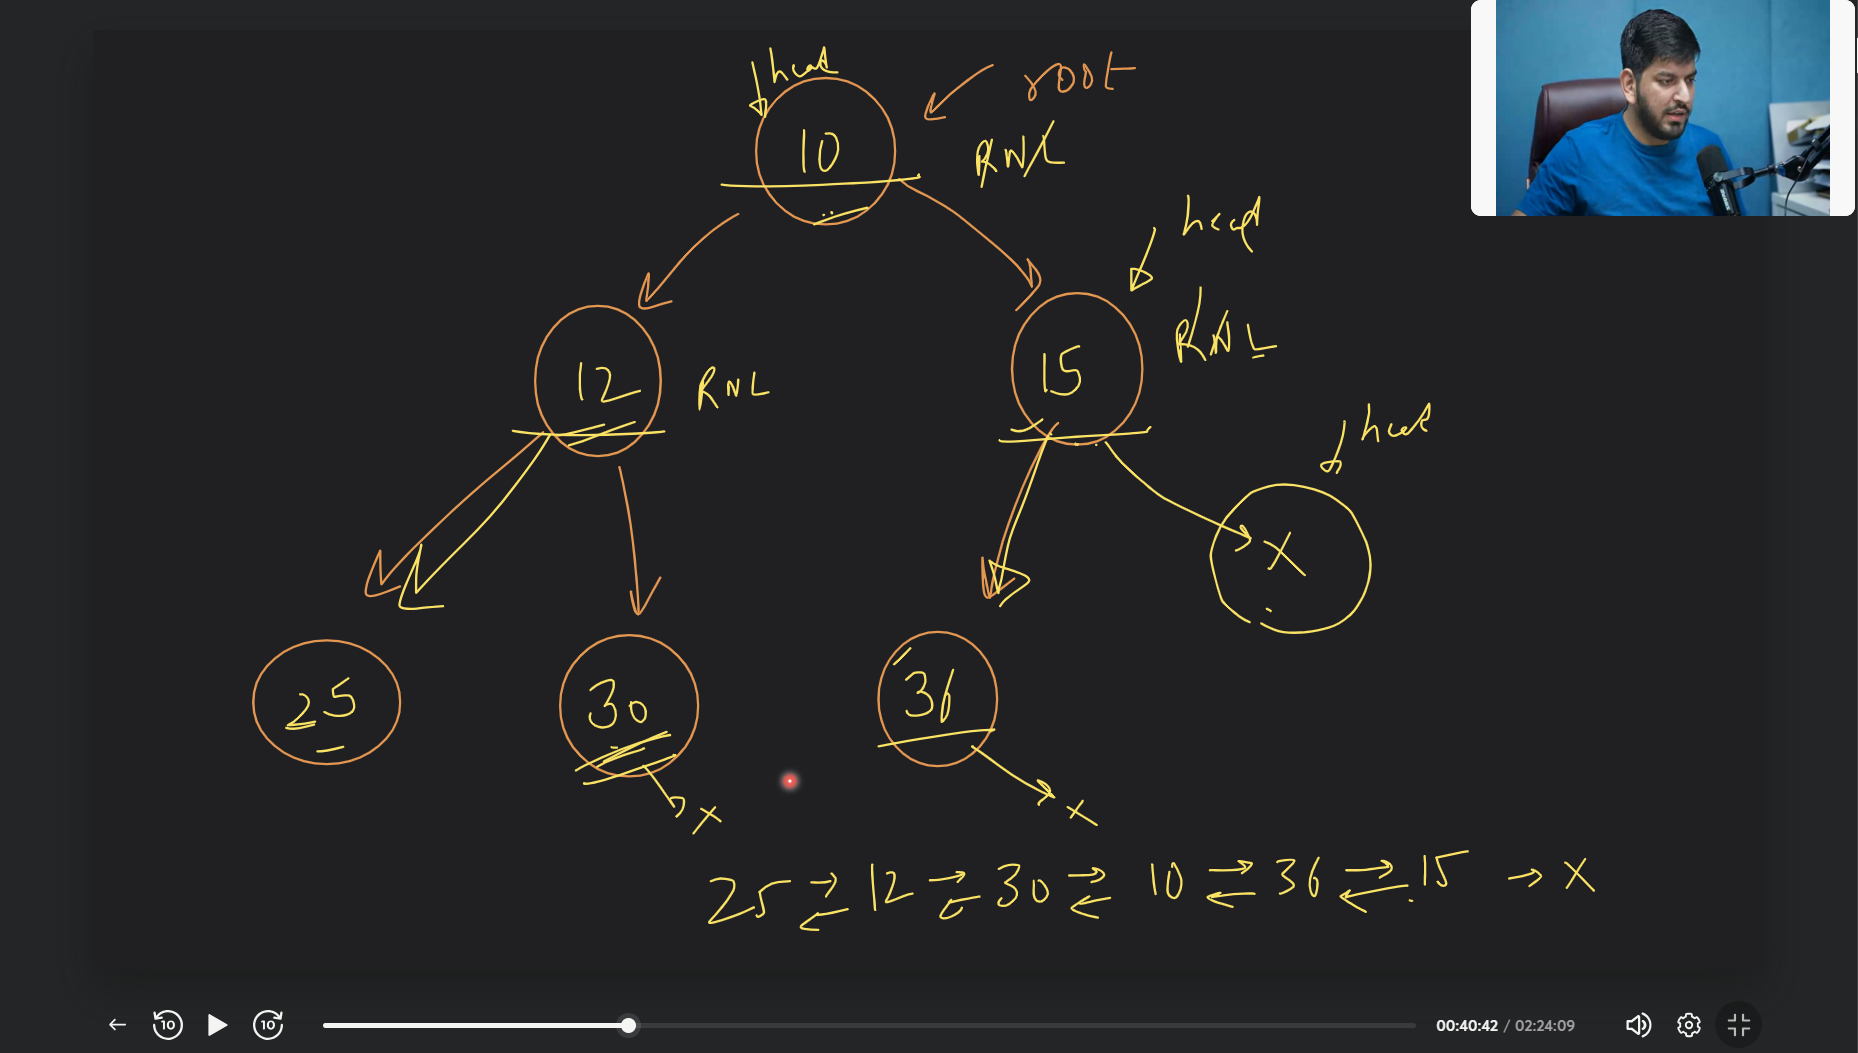 head
root
10
RNL
head
15
RNL
12
RNL
head
X
25
30
36
X
X
25 ⇄ 12 ⇄ 30 ⇄ 10 ⇄ 36 ⇄ 15 → X
10
10
00:40:42 / 02:24:09